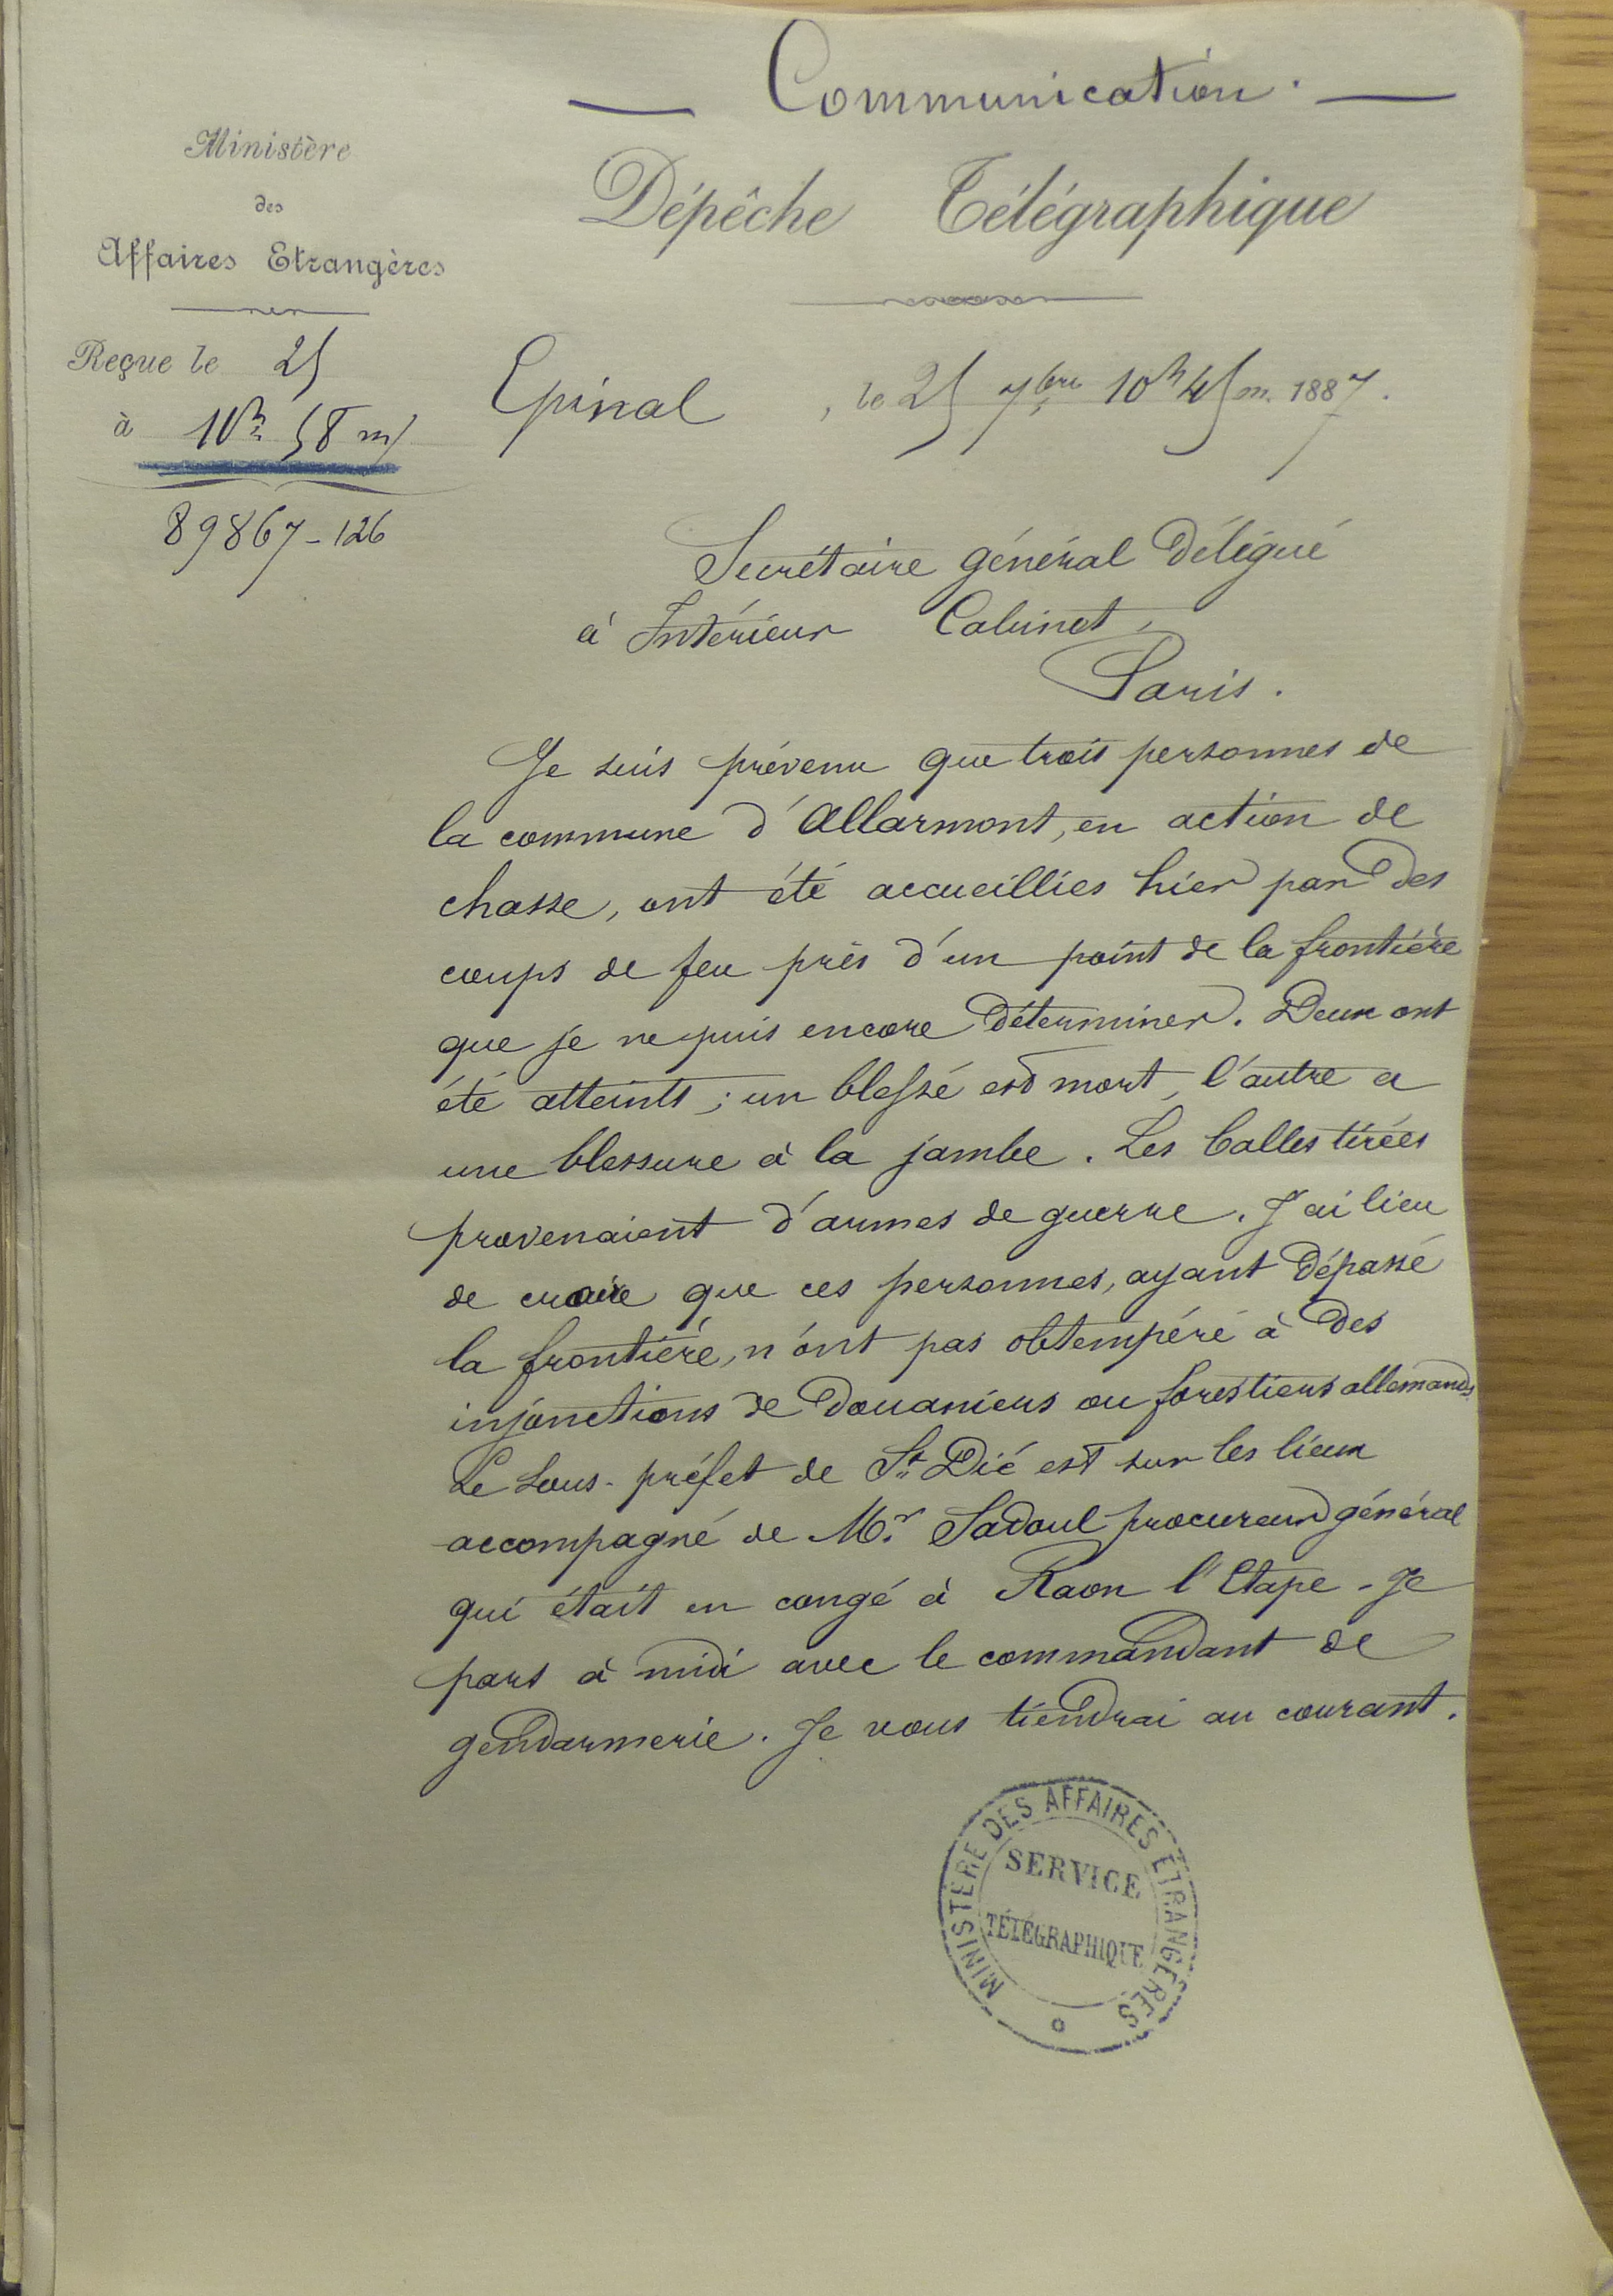 Communication.
Ministère
des
Affaires Etrangères
Dépêche Télégraphique
Reçue le 25
à 10h 58 m/
89867-126
Epinal, le 25 7bre 10h 45 m. 1887.
Secrétaire général délégué
à Intérieur Cabinet,
Paris.
Je suis prévenu que trois personnes de
la commune d'Allarmont, en action de
chasse, ont été accueillies hier par des
coups de feu près d'un point de la frontière
que je ne puis encore déterminer. Deux ont
été atteints; un blessé est mort, l'autre a
une blessure à la jambe. Les balles tirées
provenaient d'armes de guerre. J'ai lieu
de croire que ces personnes, ayant dépassé
la frontière, n'ont pas obtempéré à des
injonctions de douaniers ou forestiers allemands.
Le Sous-préfet de St Dié est sur les lieux
accompagné de Mr. Sadoul procureur général
qui était en congé à Raon l'Etape - Je
pars à midi avec le commandant de
gendarmerie. Je vous tiendrai au courant.
MINISTÈRE DES AFFAIRES ÉTRANGÈRES
SERVICE
TÉLÉGRAPHIQUE